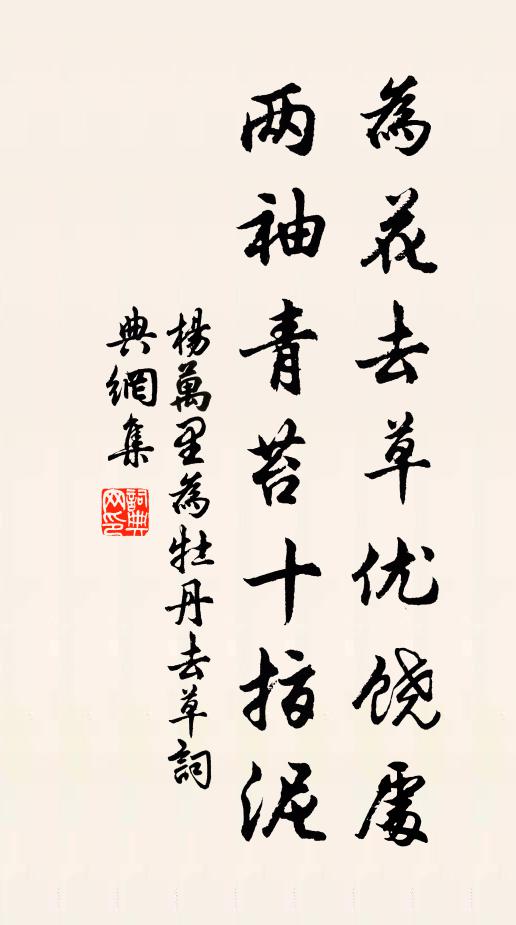 為花去草优饶處
两袖青苔十指泥
楊萬里為牡丹去草詞
典網集
詞典网印